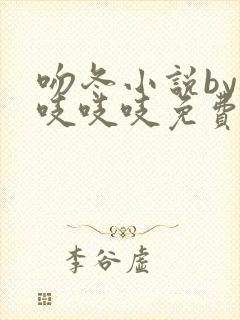 吻冬小説by
吱吱吱免費
李谷虚